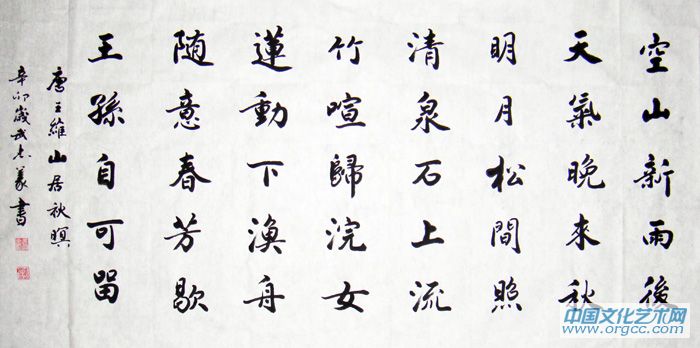 空山新雨後
天氣晚來秋
明月松間照
清泉石上流
竹喧歸浣女
蓮動下漁舟
随意春芳歇
王孫自可留
唐王維山居秋暝
辛卯歲武志義書
中国文化艺术网
www.orgcc.com